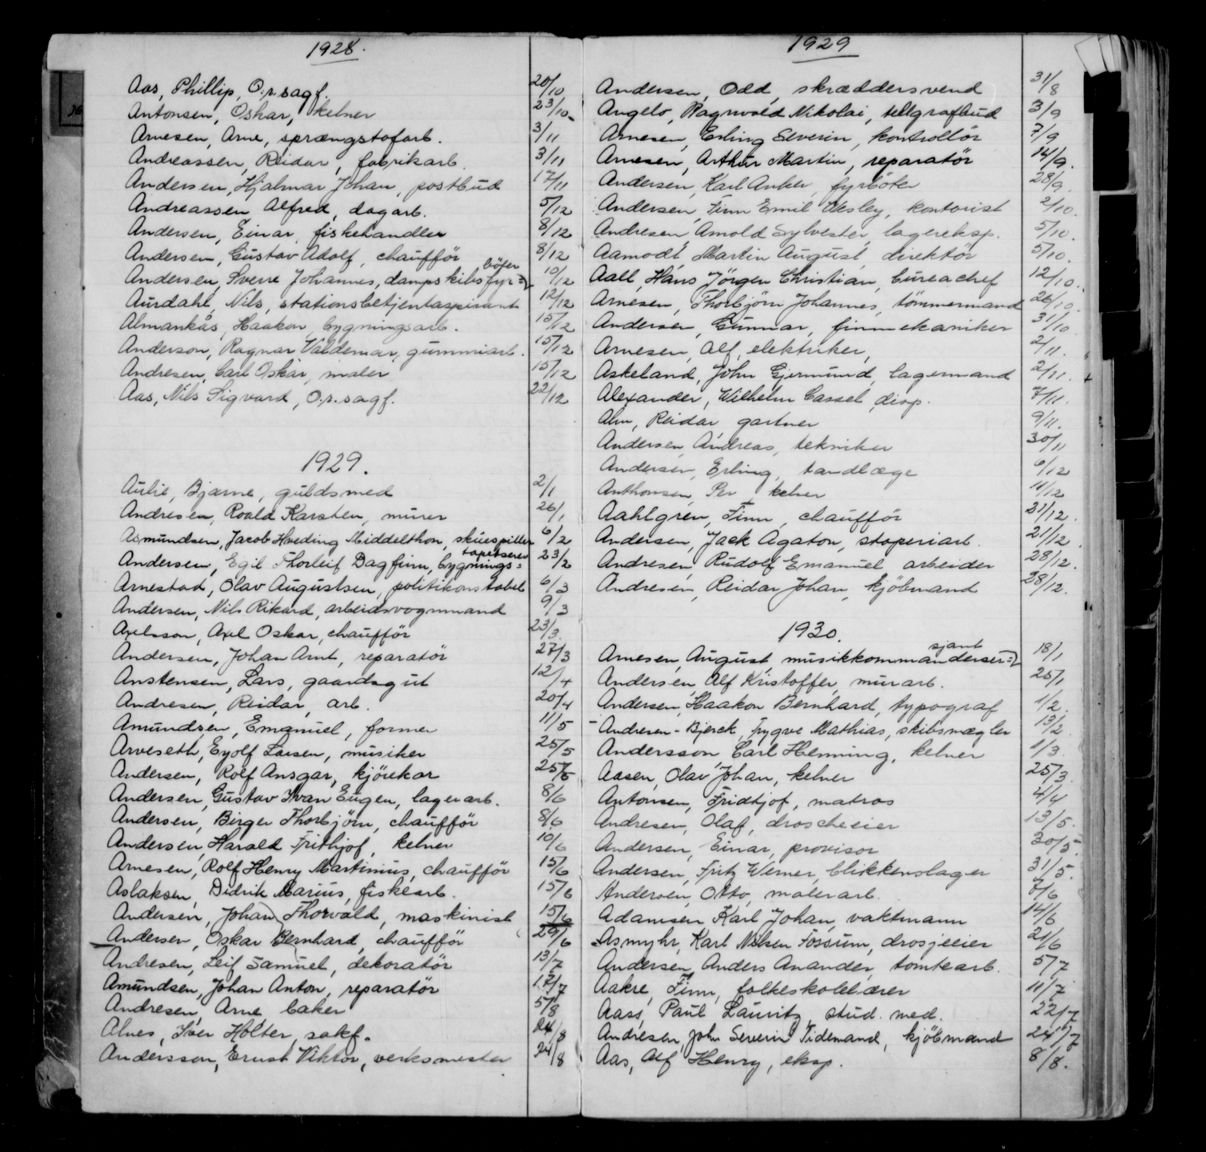 1928.
Aas, Phillip, O.r.sagf. 20/10
Antonsen, Oskar, kelner 23/10
Arnesen, Arne, sprængstofarb. 3/11
Andreassen, Reidar, fabrikarb. 3/11
Andersen, Hjalmar Johan, postbud 17/11
Andreassen Alfred, dagarb. 5/12
Andersen, Einar, fiskehandler 8/12
Andersen, Gustav Adolf, chaufför 8/12
Andersen, Sverre Johannes, dampskibsfyr= böter 10/12
Aurdahl, Nils, stationsbetjentaspirant 12/12
Almankås, Haakon, bygningsarb. 15/12
Anderson, Ragnar Valdemar, gummiarb. 15/12
Andresen, Carl Oskar, maler 15/12
Aas, Nils Sigvard, O.r.sagf. 22/12
1929.
Aulie, Bjarne, guldsmed 2/1
Andresen, Roald Karsten, murer 26/1
Asmundsen, Jacob Hoeding Middelthon, skuespiller 6/2
Andersen, Egil Thorleif Dagfinn, bygnings= tapetserer 23/2
Arnestad, Olav Augustsen, politikonstabel 6/3
Andersen, Nils Rikard, arbeidsvognmand 9/3
Axelsson, Axel Oskar, chaufför 23/3
Andersen, Johan Arnt, reparatör 27/3
Anstensen, Lars, gaardsgut 12/4
Andresen, Reidar, arb. 20/4
Amundsen, Emanuel, former 11/5
Arveseth, Eyolf Larsen, musiker 25/5
Andersen, Rolf Ansgar, kjörekar 25/5
Andersen, Gustav Ivan Eugen, lagerarb. 8/6
Andersen, Birger Thorbjörn, chaufför 8/6
Andersen Harald Frithjof, kelner 10/6
Arnesen, Rolf Henry Martinius, chaufför 15/6
Aslaksen, Didrik Marius, fiskearb. 15/6
Andersen, Johan Thorvald, maskinist 15/6
Andersen, Oskar Bernhard, chaufför 29/6
Andresen, Leif Samuel, dekoratör 13/7
Amundsen, Johan Anton, reparatör 17/7
Andresen, Arne, baker 5/8
Alnes, Iver Holter, sakf. 24/8
Andersson, Ernst Viktor, verksmester 24/8
1929
Andersen, Odd, skræddersvend 31/8
Angelo, Ragnvald Nikolai, telegrafbud 3/9
Arnesen, Erling Severin, kontrollör 7/9
Arnesen, Arthur Martin, reparatör 14/9.
Andersen, Karl Anker, fyrböter 28/9.
Andersen, Finn Emil Wesley, kontorist 2/10.
Andresen, Arnold Sylvester, lagereksp. 5/10.
Aamodt Martin August direktör 5/10.
Aall, Hans Jörgen Christian, bureauchef 12/10.
Arnesen, Thorbjörn Johannes, tömmermand 26/10
Andersen, Gunnar, finmekaniker 31/10
Arnesen, Alf, elektriker, 2/11.
Askeland, John Gjermund, lagermand 2/11.
Alexander, Wilhelm Cassel, disp. 7/11.
Alm, Reidar, gartner 9/11.
Andersen, Andreas, tekniker 30/11
Andersen, Erling, tandlæge 6/12
Anthonsen, Per, kelner 11/12
Aahlgren, Finn, chaufför 21/12.
Andersen, Jack Agaton, støperiarb. 21/12.
Andresen, Rudolf Emanuel arbeider 28/12.
Andresen, Reidar Johan, kjöbmand 28/12.
1930.
Arnesen, August, musikkommanderser= sjant 18/1
Andersen Alf Kristoffer, murarb. 25/1
Andersen, Haakon Bernhard, typograf 1/2.
Andresen-Bjerck, Trygve Mathias, skibsmægler 13/2
Andersson, Carl Henning, kelner 1/3.
Aasen, Olav Johan, kelner 25/3.
Antonsen, Fridtjof, matros 4/4
Andresen, Olaf, droscheeier 13/5.
Andersen, Einar, provisor 30/5.
Andersen, Fritz Werner, blikkenslager 31/5.
Andersen, Otto, malerarb. 7/6
Adamsen Karl Johan, vaktmann 14/6
Asmyhr, Karl Nilsen Fossum, drosjeeier 21/6
Andersen, Anders Anander, tomtearb. 5/7
Aakre, Finn, folkeskolelærer 11/7
Aass, Paul Lauritz, stud. med. 22/7
Andresen, John Severin Tidemand, kjöbmand 24/7
Aas, Alf Henry, eksp. 8/8.